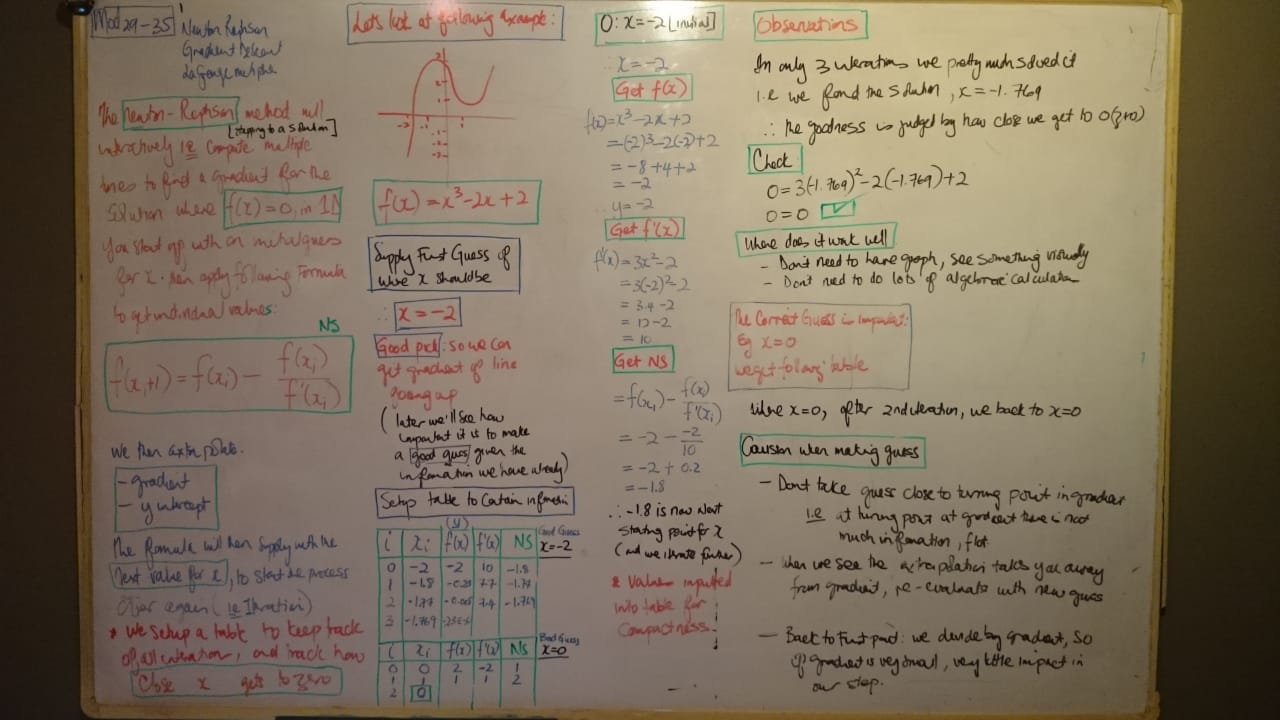 Mod 29-35
Newton Raphson
Gradient Descent
LaGrange multiplier
The Newton-Raphson method will
[stepping to a solution]
interactively i.e compute multiple
times to find a gradient for the
solution where f(x)=0, in 1D
You start off with an initial guess
for x. then apply following Formula
to get individual values:
NS
f(xi+1) = f(xi) - f(xi)/f'(xi)
We then extrapolate.
- gradient
- y intercept
The formula will then supply with the
next value for x, to start the process
over again (i.e Iteration)
* We setup a table to keep track
of all interation, and track how
Close x gets to zero
Lets look at following Example:
f(x) = x³-2x+2
Supply First Guess of
where x should be
∴ x = -2
Good pick: so we can
get gradient of line
going up
(later we'll see how
important it is to make
a good guess given the
information we have already)
Setup table to Contain information
(y)
i xi f(x) f'(x) NS
Good Guess
x=-2
0 -2 -2 10 -1.8
1 -1.8 7.7 -1.77
2 -1.77 7.4 -1.769
3 -1.769
i xi f(x) f'(x) NS
Bad Guess
x=0
0 0 2 -2 1
1 1 1 1
2 0
0: x=-2 [initial]
∴ x = -2
Get f(x)
f(x)=x³-2x+2
=(-2)³-2(-2)+2
= -8+4+2
= -2
∴ y=-2
Get f'(x)
f'(x) = 3x²-2
= 3(-2)²-2
= 3.4 -2
= 12-2
= 10
Get NS
= f(xi) - f(xi)/f'(xi)
= -2 - -2/10
= -2 + 0.2
= -1.8
∴ -1.8 is now next
starting point for x
(and we iterate further)
* Values inputed
into table for
Compactness.
Observations
In only 3 iterations we pretty much solved it
i.e we found the solution, x = -1.769
∴ the goodness is judged by how close we get to 0
Check
0 = 3(-1.769)²-2(-1.769)+2
0 = 0 ✓
Where does it work well
- Don't need to have graph, see something visually
- Don't need to do lots of algebraic calculation
The Correct Guess is important:
Eg x=0
we get following table
Where x=0, after 2nd iteration, we back to x=0
Caution when making guess
- Don't take guess close to turning point in gradient
i.e at turning point at gradient there is not
much information, flat
- When we see the extrapolation takes you away
from gradient, re-evaluate with new guess
- Back to First part: we divide by gradient, so
if gradient is very small, very little impact in
our step.